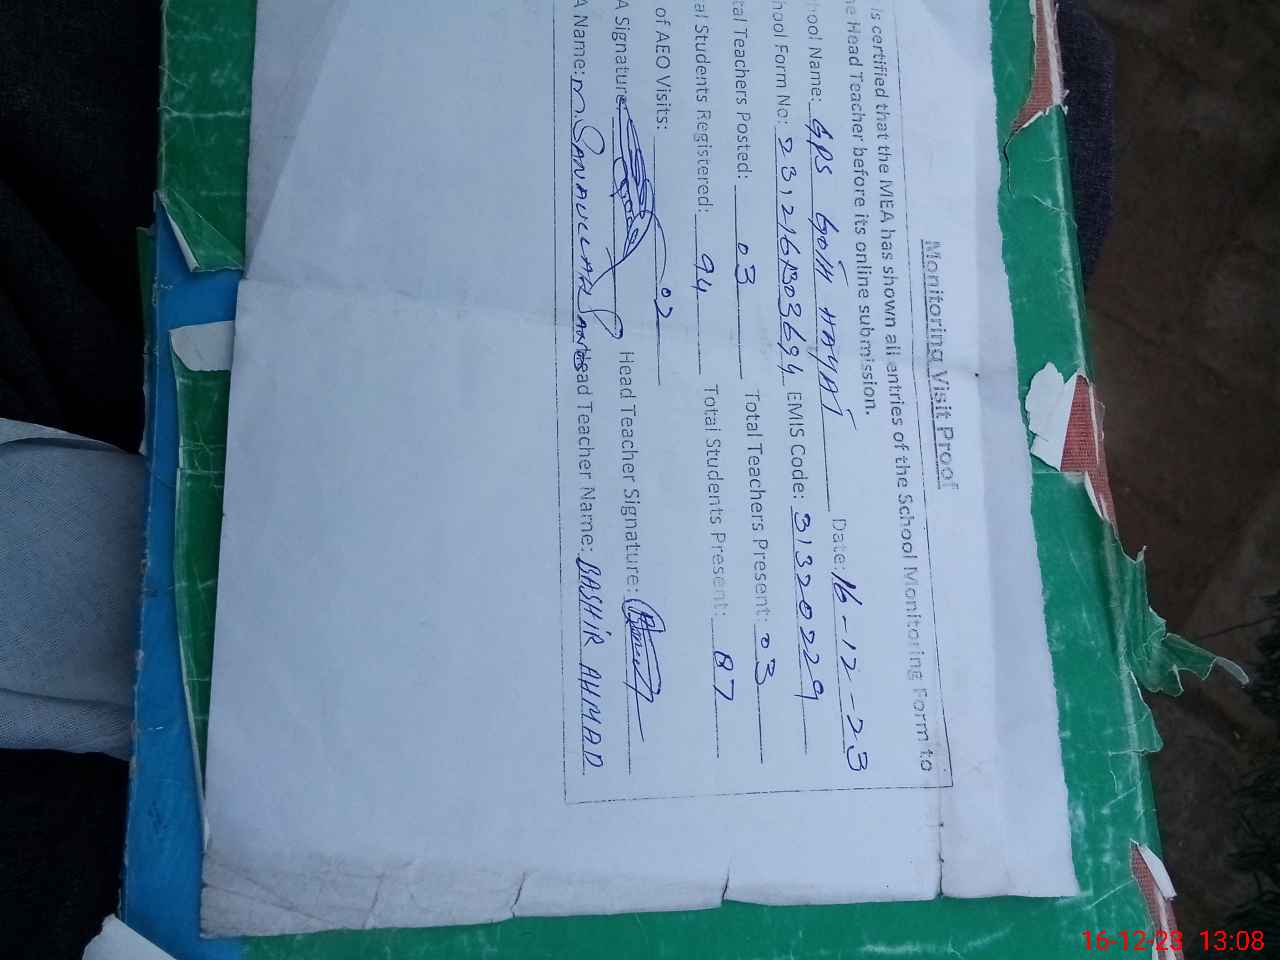 Monitoring Visit Proof
is certified that the MEA has shown all entries of the School Monitoring Form to
he Head Teacher before its online submission.
hool Name: GPS GOTH HAYAT Date: 16-12-23
hool Form No: EMIS Code: 31320229
tal Teachers Posted: 03 Total Teachers Present: 03
al Students Registered: 94 Total Students Present: 87
of AEO Visits: 02
A Signature: Head Teacher Signature:
A Name: M. SANAULLAH ead Teacher Name: BASHIR AHMAD
16-12-23 13:08